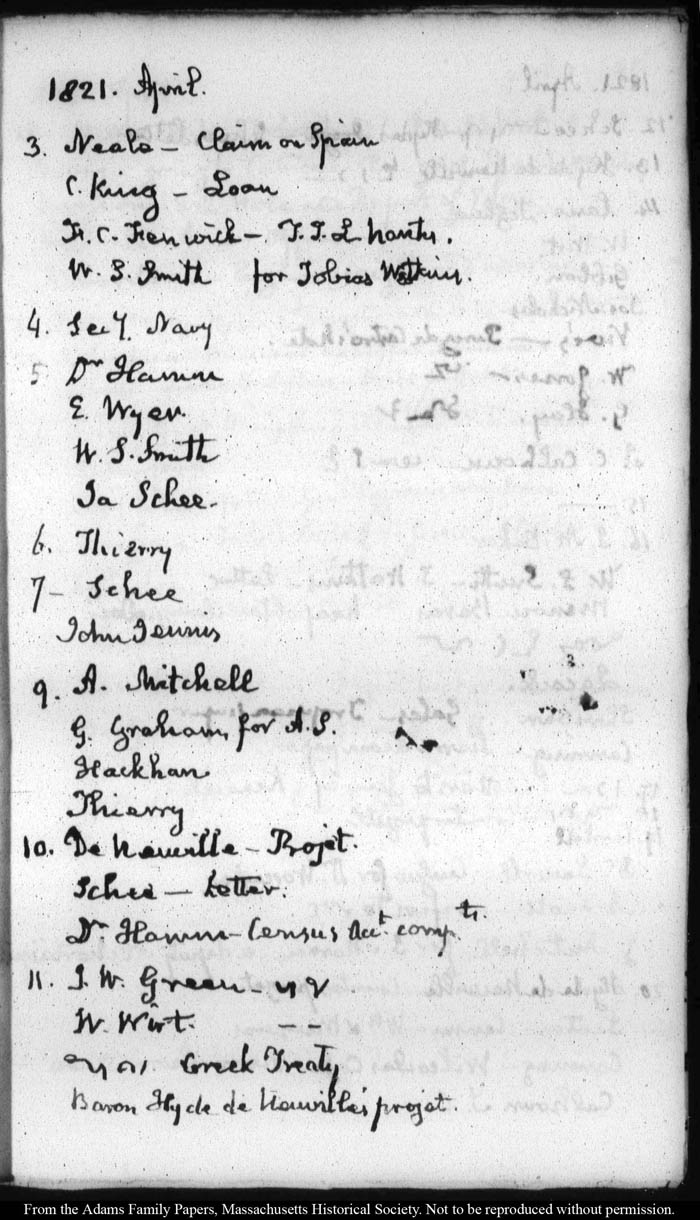 1821. April.
3. Neale – Claim on Spain
C. King – Loan
Fr. C. Fenwick –
W. S. Smith for Tobias Watkins.
4. Secy. Navy
5 Dr Hamm
E. Wyer
W. S. Smith
Ja Schee.
6. Thierry
7 – Schee
John Jennis
9. A. Mitchell
G. Graham, for A.S.
Hackhan
Thierry
10. De Neuville – Projet.
Schee – Letter.
Dr. Hamm – Census Acct. compts.
11. J. W. Green
W. Wirt. – –
Creek Treaty
Baron Hyde de Neuville's projet.
From the Adams Family Papers, Massachusetts Historical Society. Not to be reproduced without permission.